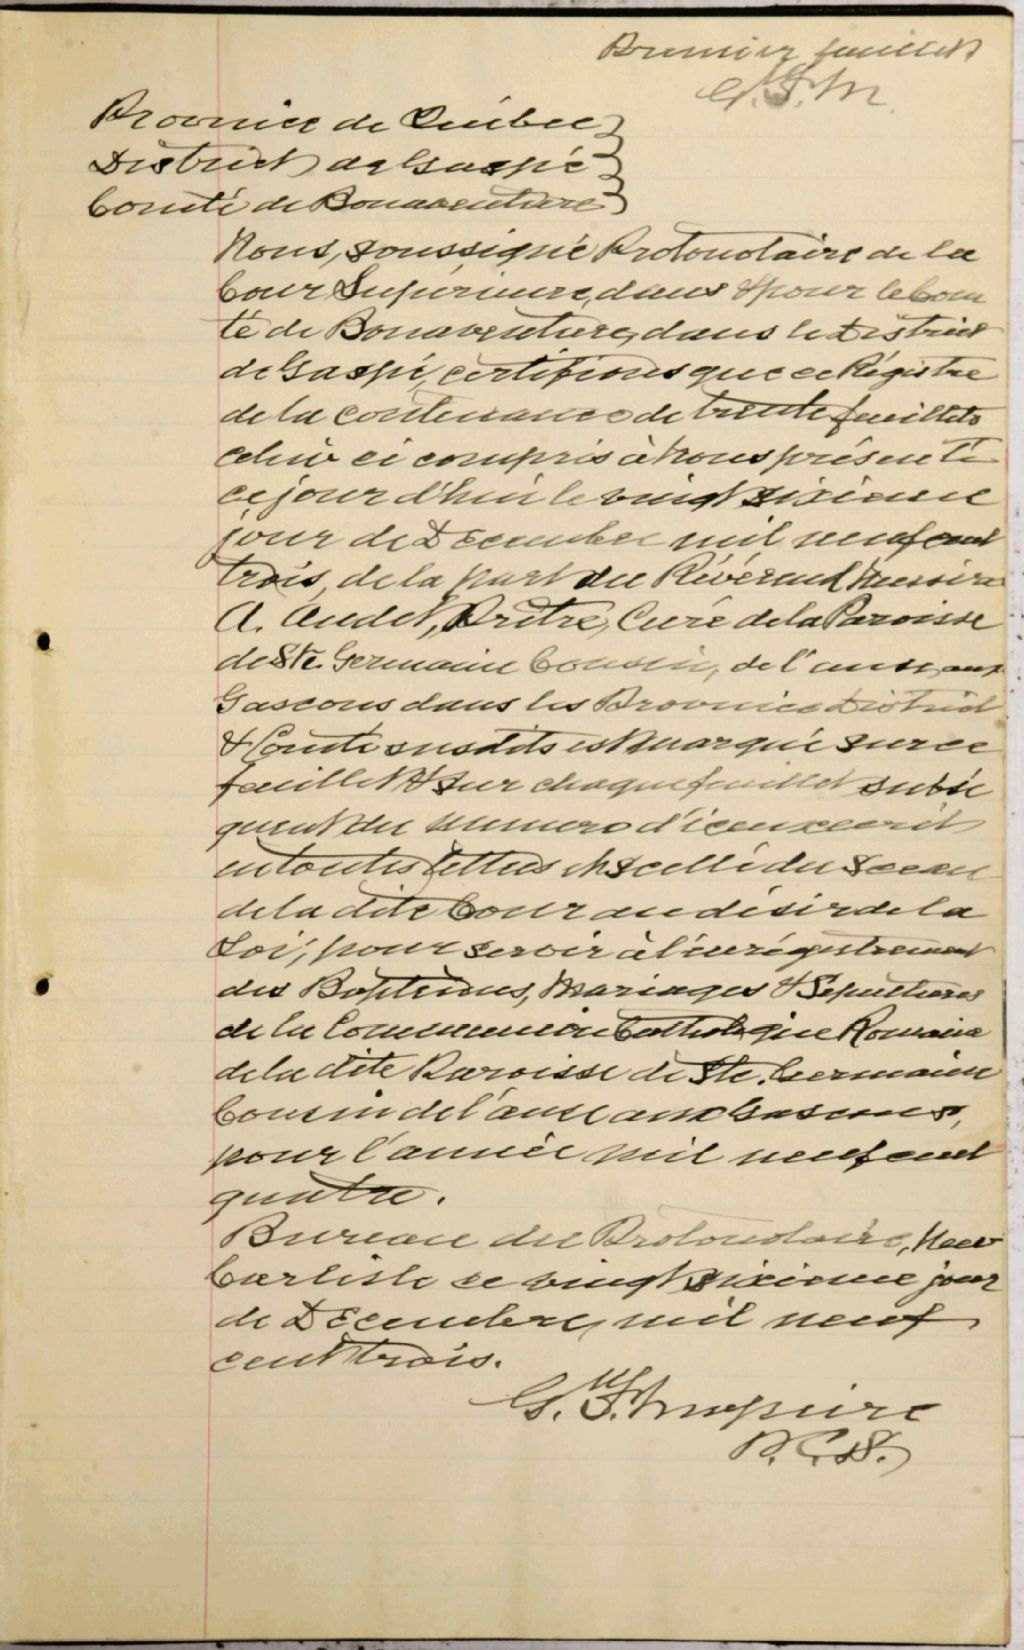 Premier feuillet
G.M.
Province de Québec }
District de Gaspé }
Comté de Bonaventure }
Nous, soussigné Protonotaire de la
Cour Supérieure, dans & pour le Com
té de Bonaventure, dans le District
de Gaspé, certifions que ce Régistre
de la contenance de trente feuillets
celui ci compris à Nous présenté
ce jour d'hui le vingt sixieme
jour de Décembre mil neuf cent
trois, de la part du Révérend Messire
A. Audet, Prêtre, Curé de la Paroisse
de Ste. Germaine Cousin, de l'anse aux
Gascons dans les Province District
& Comté susdits est marqué sur ce
feuillet & sur chaque feuillet subsé
quent du numero d'iceux ecrit
en toutes lettres et scellé du Sceau
de la dite Cour au désir de la
Loi, pour servir à l'enrégistrement
des Baptêmes, Mariages & Sepultures
de la Communion Catholique Romaine
de la dite Paroisse de Ste. Germaine
Cousin de l'anse aux Gascons,
pour l'année mil neuf cent
quatre.
Bureau du Protonotaire, New
Carlisle ce vingt sixieme jour
de Décembre, mil neuf
cent trois.
G. M.
P.C.S.